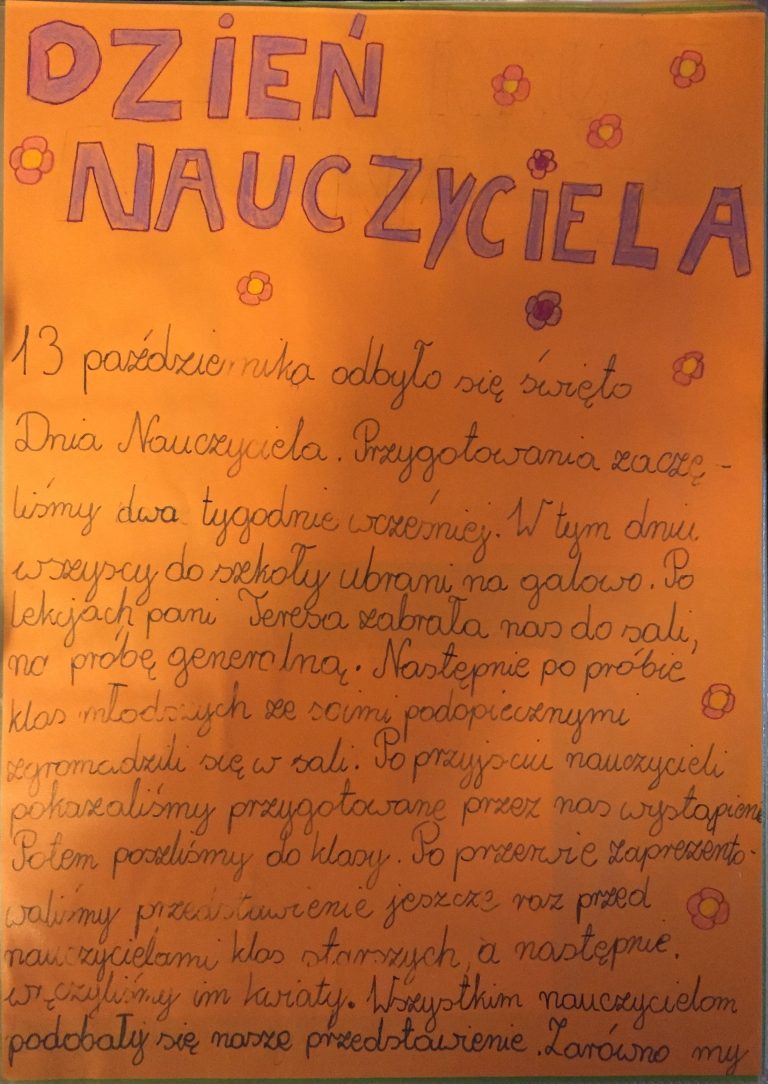 DZIEŃ
NAUCZYCIELA
13 października odbyło się święto
Dnia Nauczyciela. Przygotowania zaczę-
liśmy dwa tygodnie wcześniej. W tym dniu
wszyscy do szkoły ubrani na galowo. Po
lekcjach pani Teresa zabrała nas do sali,
na próbę generalną. Następnie po próbie
klas młodszych ze soimi podopiecznymi
zgromadzili się w sali. Po przyjściu nauczycieli
pokazaliśmy przygotowane przez nas wystąpien
Potem poszliśmy do klasy. Po przerwie zaprezento-
waliśmy przedstawienie jeszcze raz przed
nauczycielami klas starszych, a następnie.
wręczyliśmy im kwiaty. Wszystkim nauczycielom
podobały się nasze przedstawienie. Zarówno my